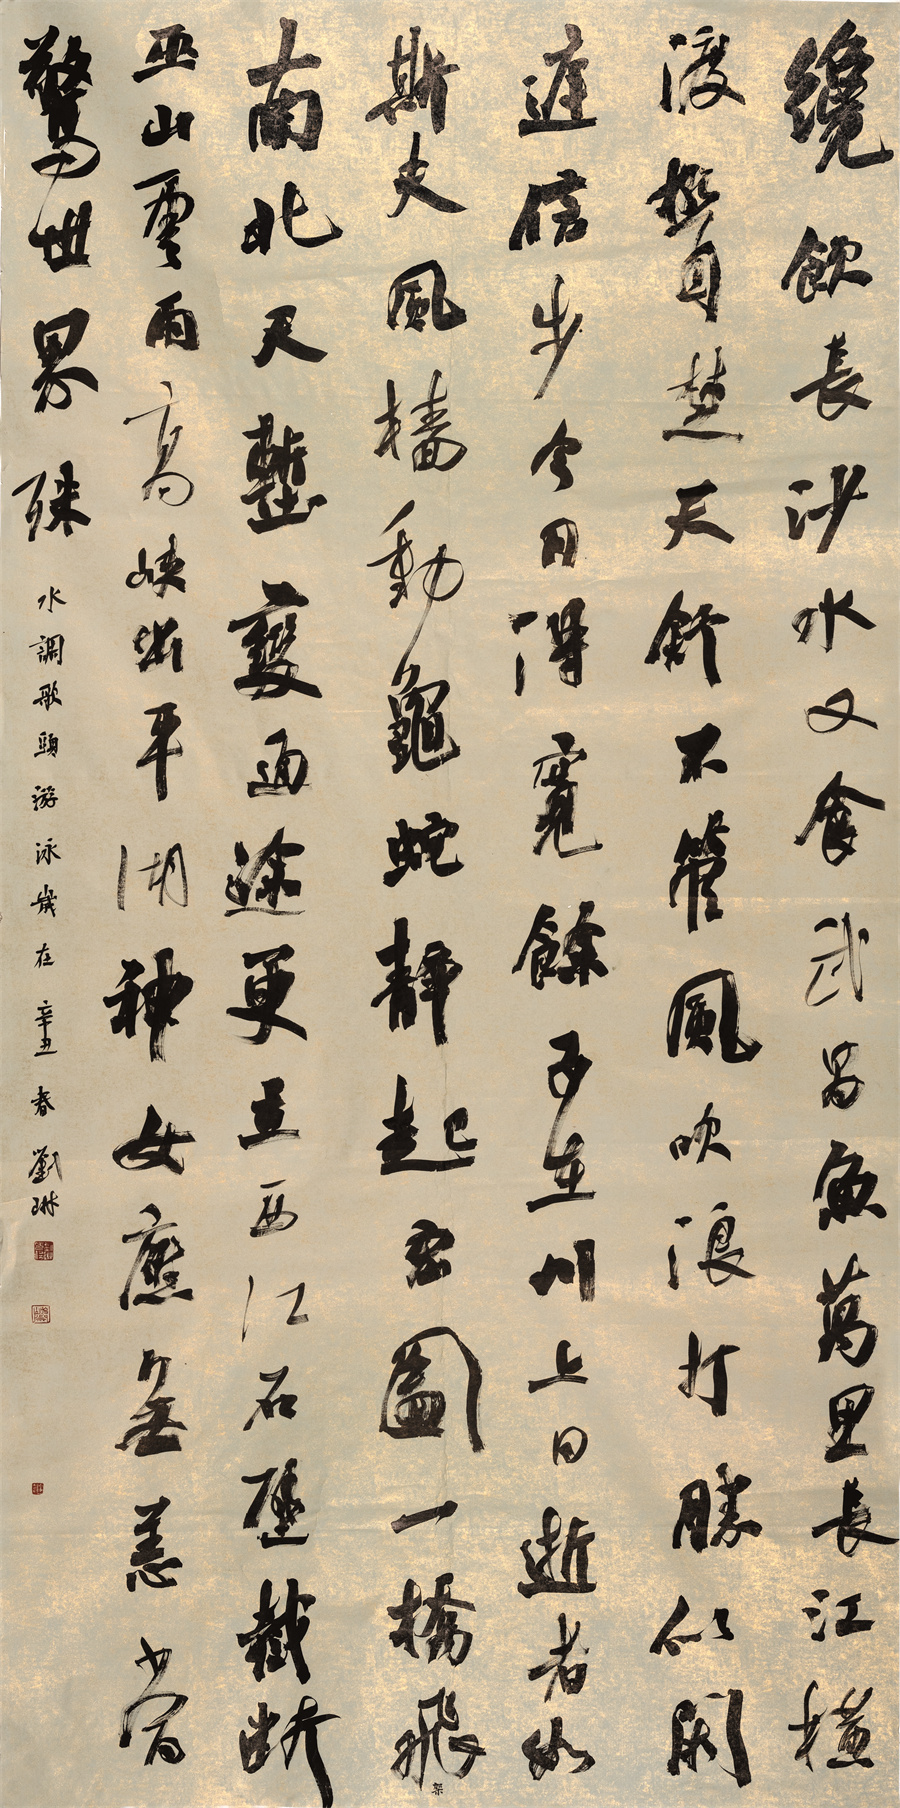 纔飲長沙水又食武昌魚萬里長江橫
渡極目楚天舒不管風吹浪打勝似閑
庭信步今日得寬餘子在川上曰逝者如
斯夫風檣動龜蛇靜起宏圖一橋飛架
南北天塹變通途更立西江石壁截斷
巫山雲雨高峽出平湖神女應無恙當
驚世界殊
水調歌頭游泳歲在辛丑春劉琳